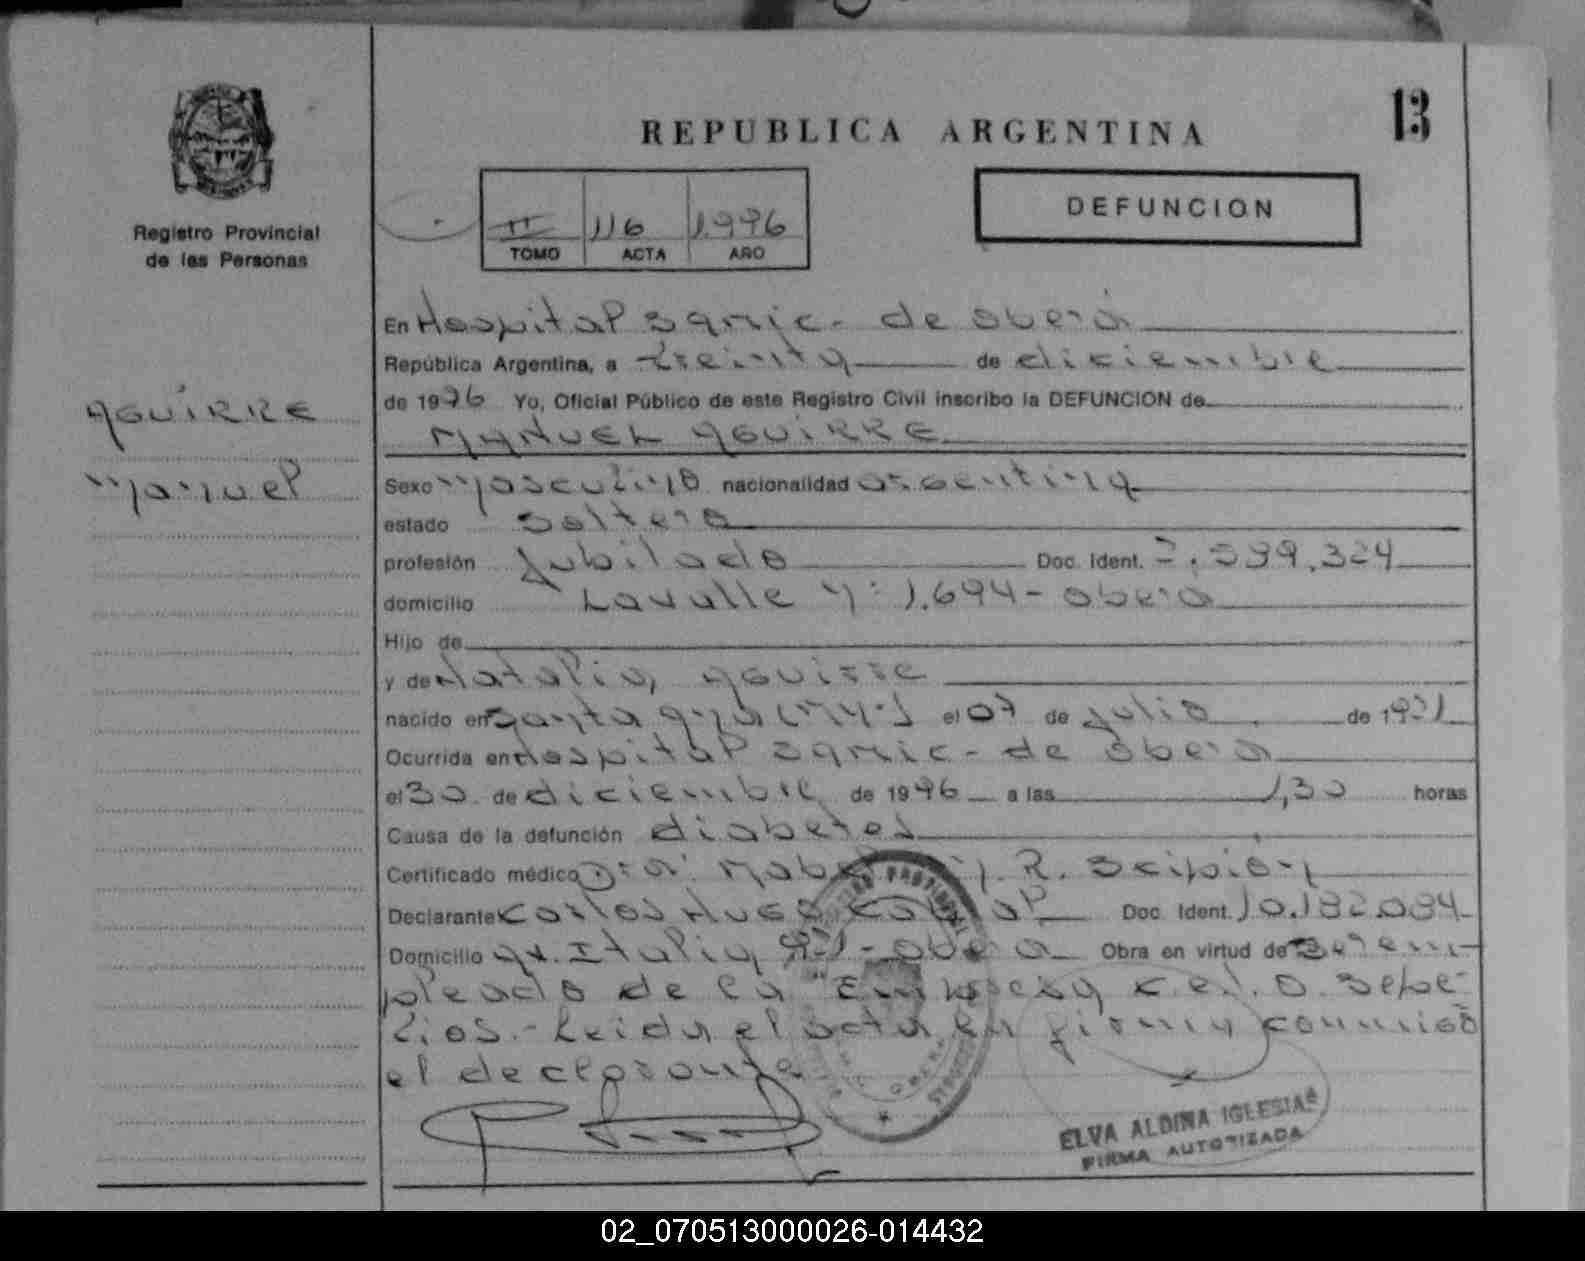 13
REPUBLICA ARGENTINA
DEFUNCION
II 116 1.996
TOMO ACTA AÑO
Registro Provincial
de las Personas
AGUIRRE
Manuel
En Hospital Samic - de oberá
República Argentina, a treinta de diciembre
de 1996 Yo, Oficial Público de este Registro Civil inscribo la DEFUNCION de
MANUEL AGUIRRE
Sexo masculino nacionalidad argentina
estado soltero
profesión Jubilado Doc. Ident. 7.539.324
domicilio Lavalle N: 1.694 - oberá
Hijo de
y de Natalia, Aguirre
nacido en Santa Ana (Mns) el 07 de Julio de 19
Ocurrida en Hospital Samic - de oberá
el 30 de diciembre de 1996 a las 1,30 horas
Causa de la defunción diabetes
Certificado médico Dra. R. Scipión
Declarante Carlos Hugo Doc. Ident. 10.182.094
Domicilio Av. Italia - oberá Obra en virtud de Ser em-
pleado de la "Empresa c.e.l.o. Sepe-
lios.- Leida el acta la firma conmigo
el declarante
ELVA ALDINA IGLESIAS
FIRMA AUTORIZADA
02_070513000026-014432